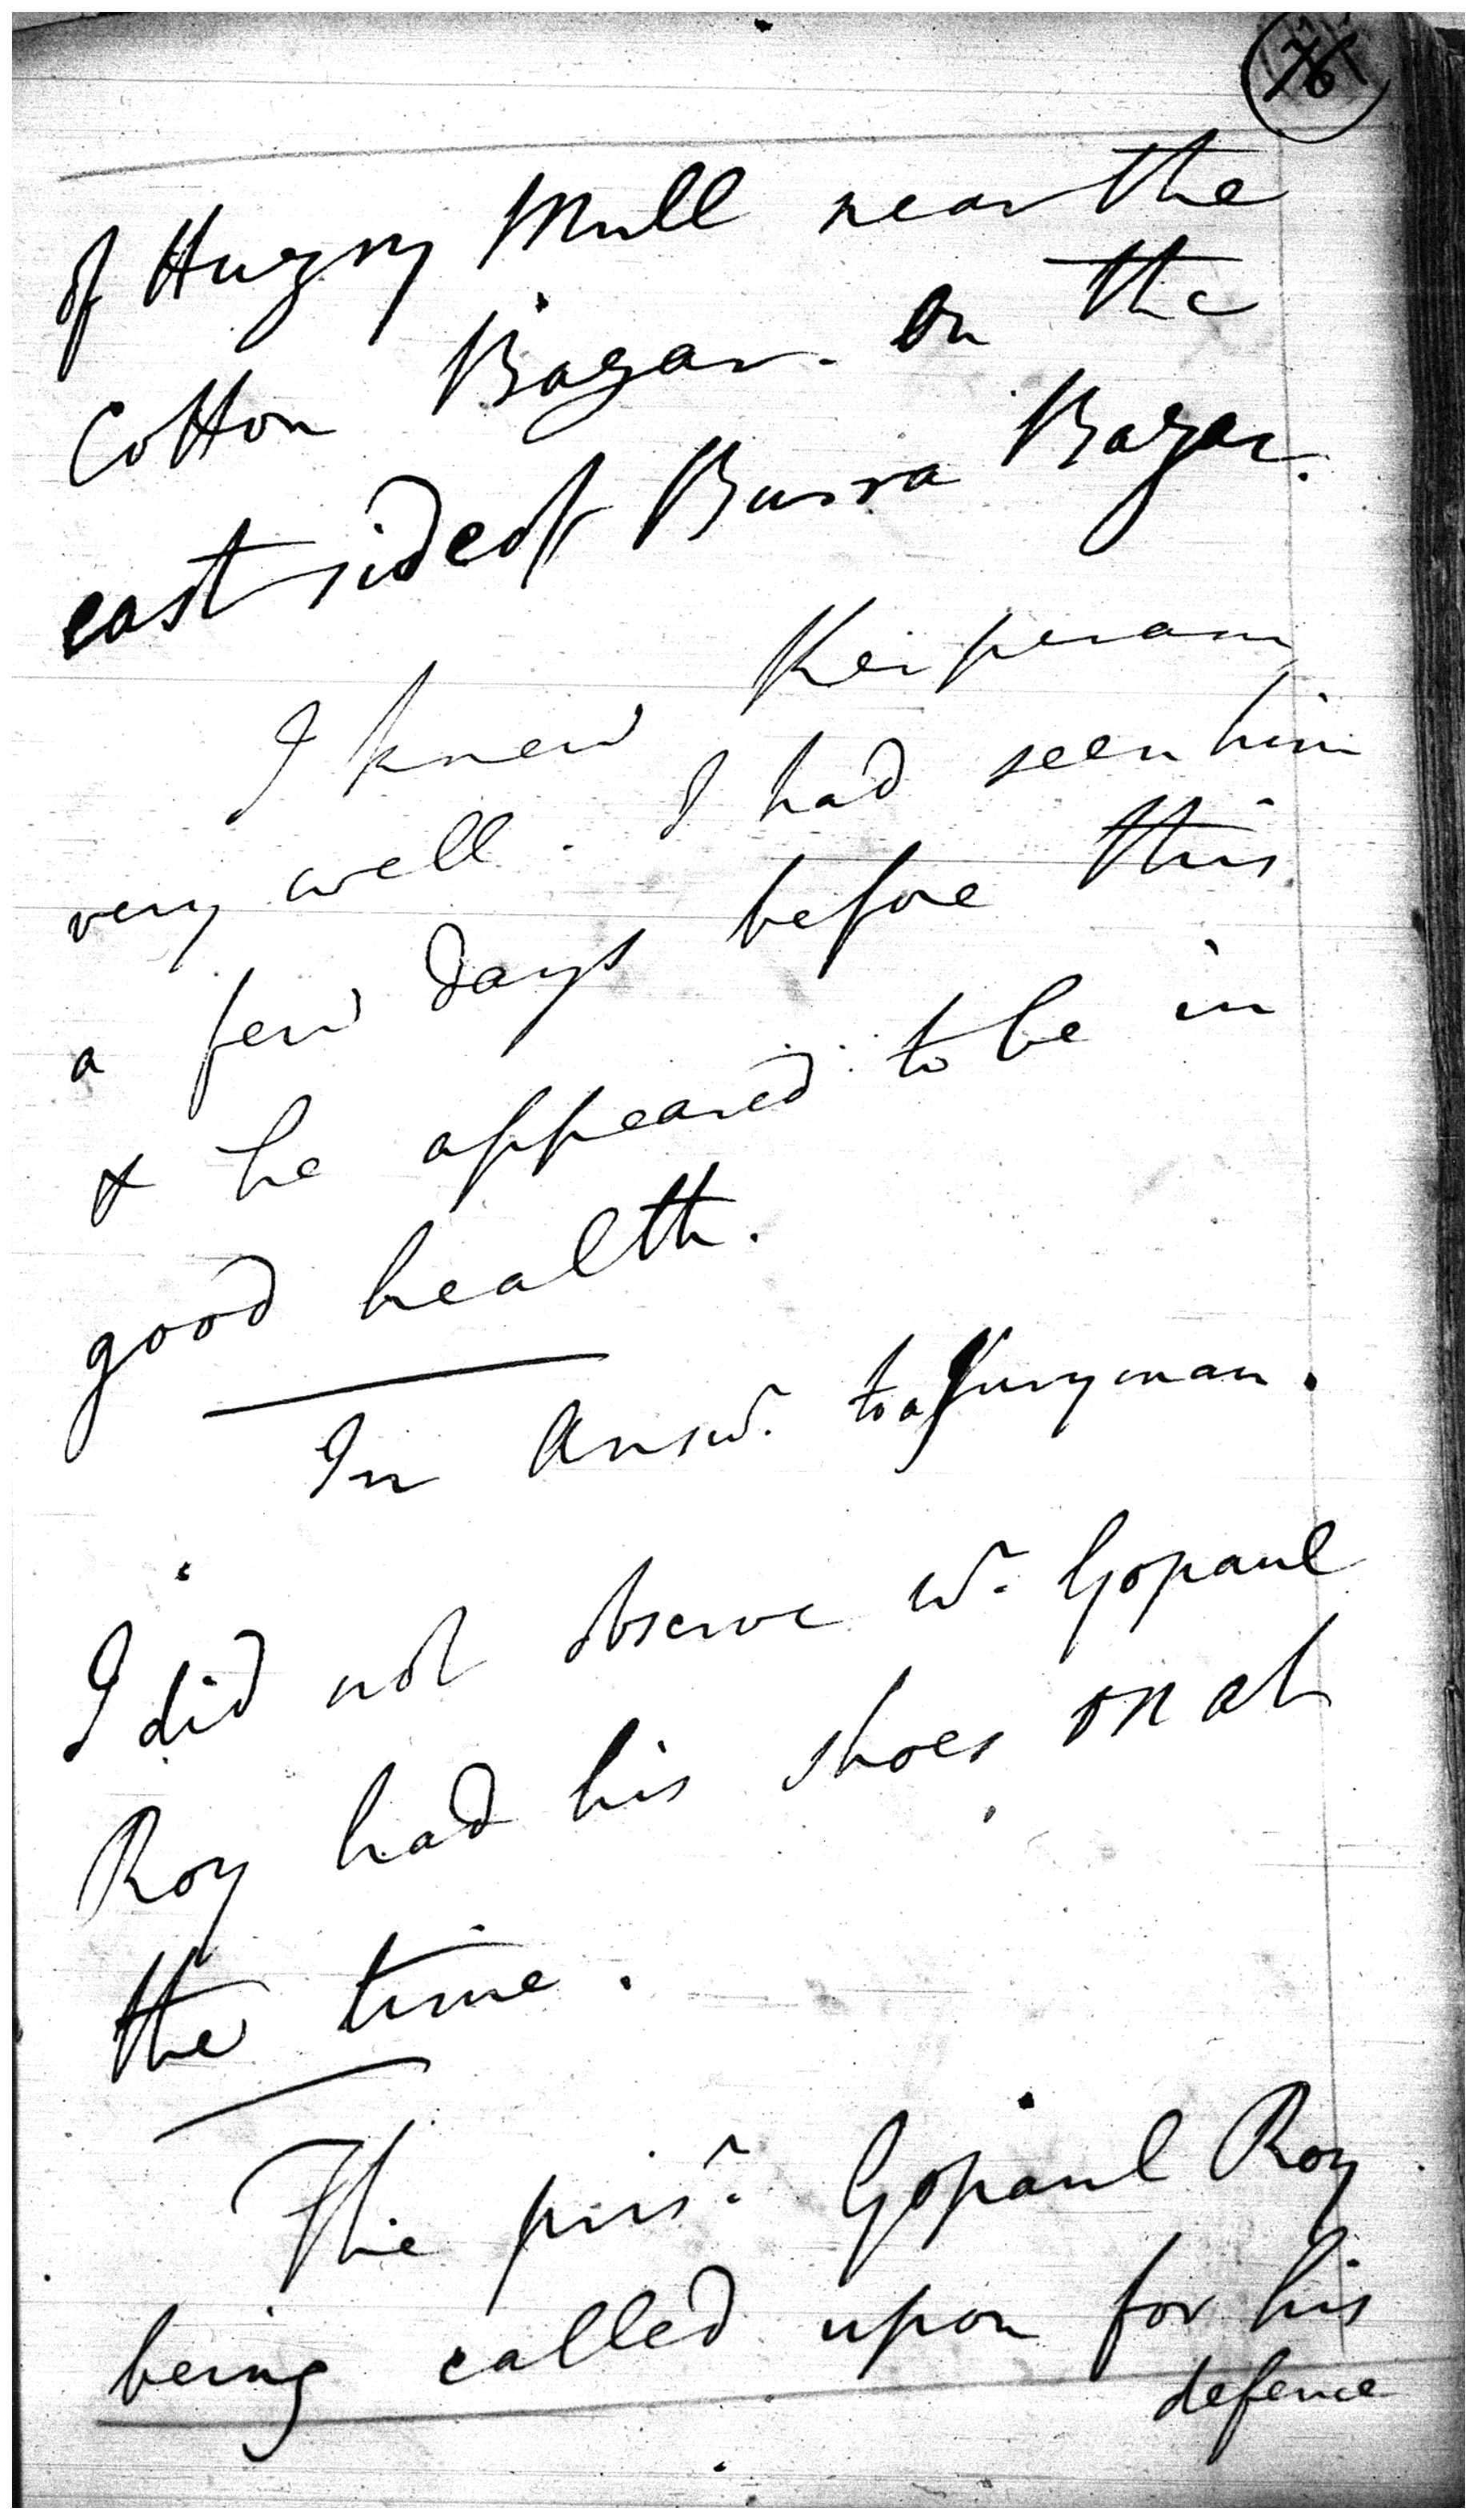 76
of Huzry Mull near the
Cotton Bazar. On the
east side of Burra Bazar.
I knew Kerperam
very well. I had seen him
a few days before this
& he appeared to be in
good health.
In Answr. to a Juryman.
I did not observe wr. Gopaul
Roy had his shoes on at
the time.
The prisr. Gopaul Roy
being called upon for his
defence